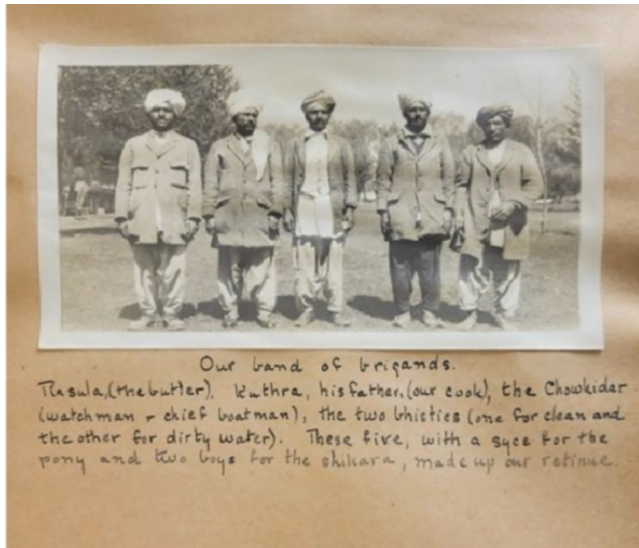 Our band of brigands.
Rasula, (the butler), Kuthra, his father, (our cook), the Chowkidar
(watchman & chief boatman), the two bhisties (one for clean and
the other for dirty water). These five, with a syce for the
pony and two boys for the shikara, made up our retinue.